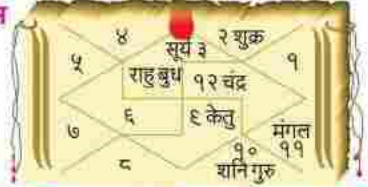 ४ सूर्य ३ २ शुक्र
५ १
राहु बुध १२ चंद्र
६ ९ केतु
७ मंगल
१० ११
८ शनि गुरु